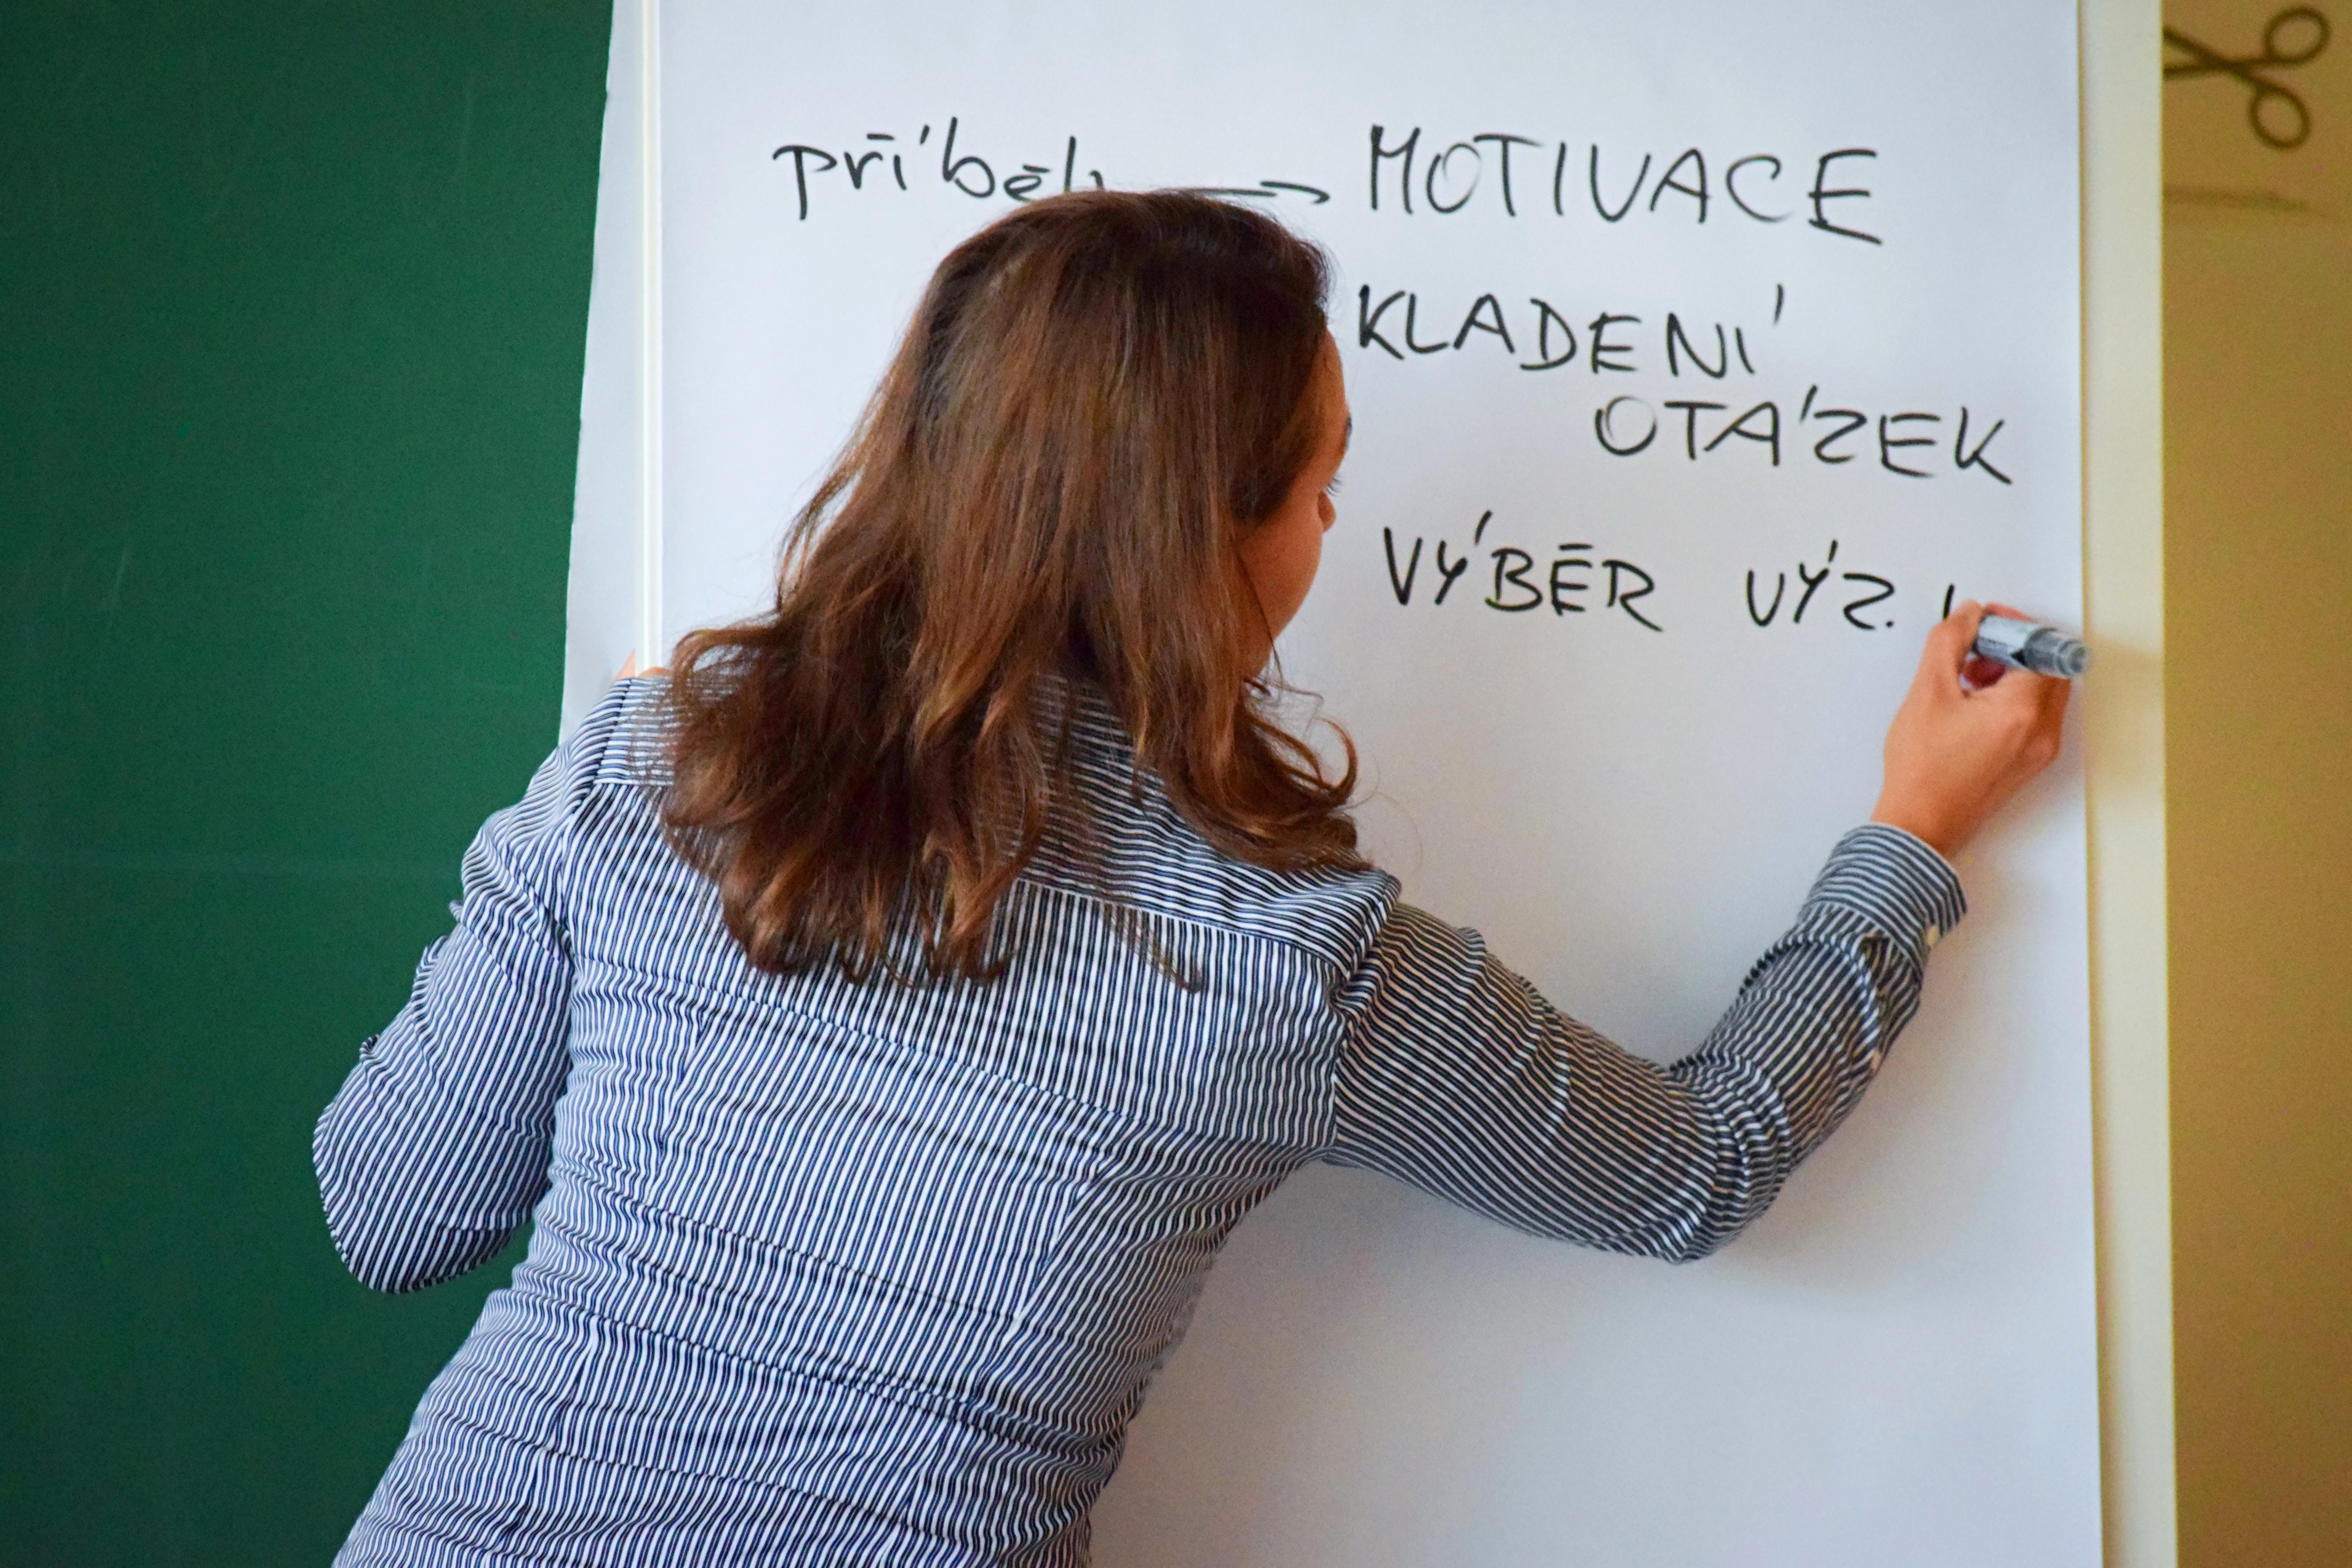 příběh → MOTIVACE
KLADENÍ
OTÁZEK
VÝBĚR VÝZ.